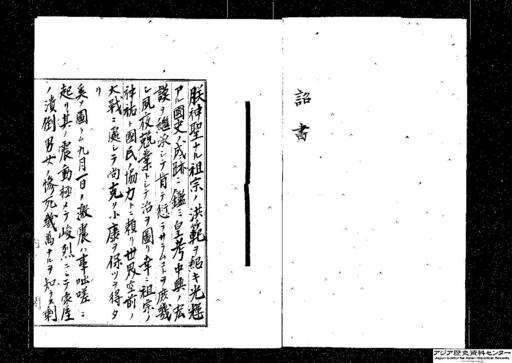 詔書
朕神聖ナル祖宗ノ洪範ヲ紹キ光輝
アル國史ノ成跡ニ鑑ミ皇考中興ノ宏
謨ヲ継承シテ肯テ愆ラサラムコトヲ庶幾
シ夙夜兢業トシテ治ヲ圖リ幸ニ祖宗ノ
神祐ト國民ノ協力トニ頼リ世界空前ノ
大戦ニ處シテ尚克ク小康ヲ保ツヲ得タ
リ
奚ソ圖ラム九月一日ノ激震ハ事咄嗟ニ
起リ其ノ震動極メテ峻烈ニシテ家屋
ノ潰倒男女ノ惨死幾萬ナルヲ知ラス剰
アジア歴史資料センター
Japan Center for Asian Historical Records